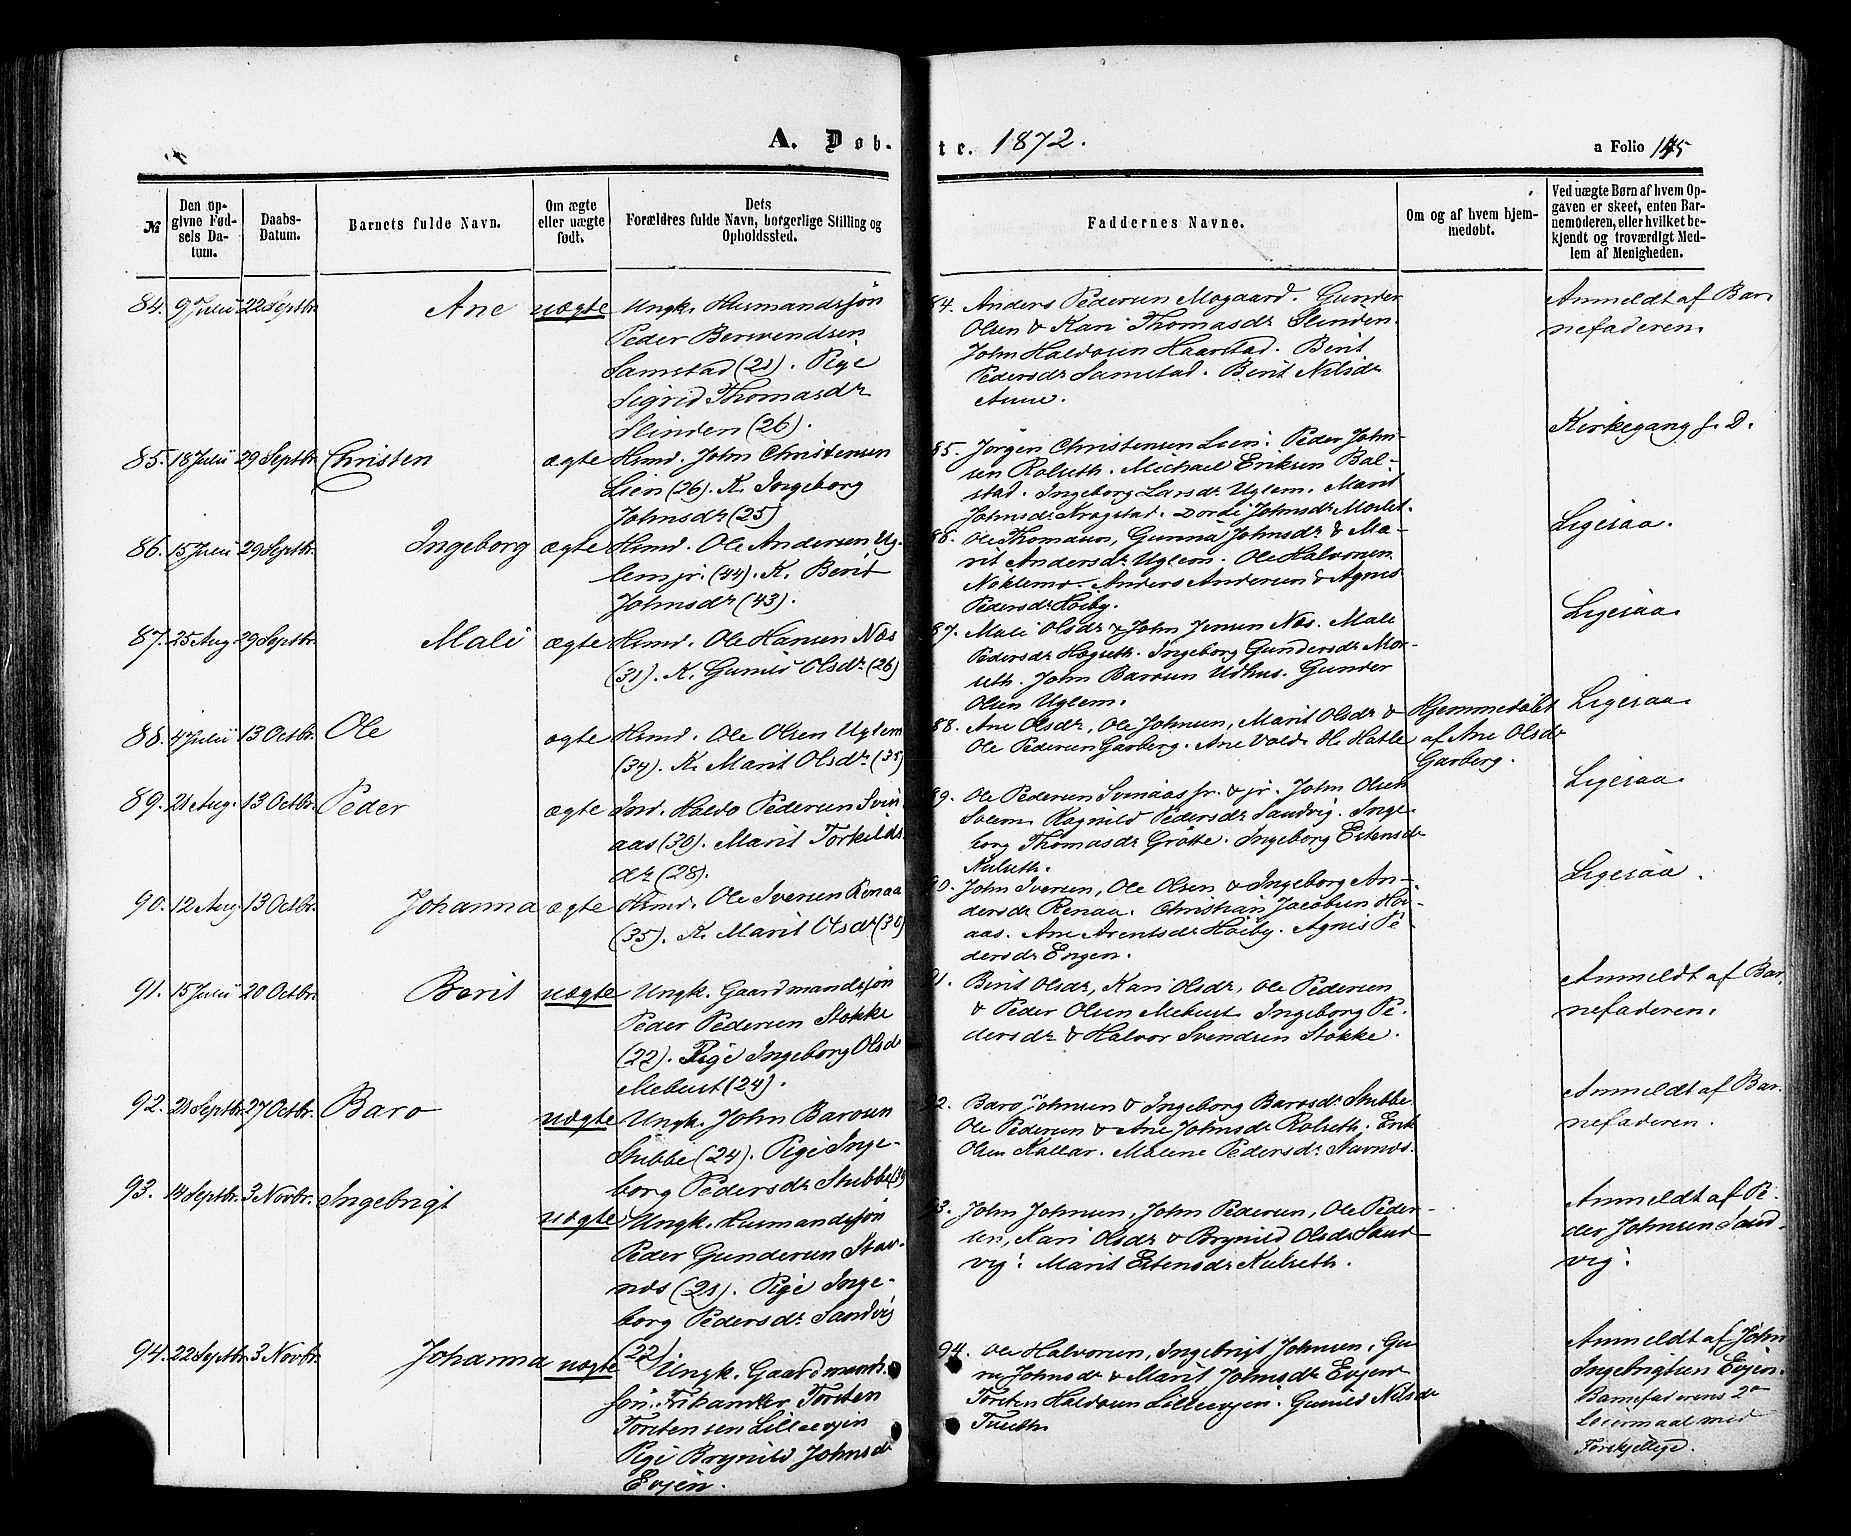 A. Døb-
te. 1872.
a Folio 145
№
Den op-
givne Fød-
sels Da-
tum.
Daabs-
Datum.
Barnets fulde Navn.
Om ægte
eller uægte
født.
Dets
Forældres fulde Navn, borgerlige Stilling og
Opholdssted.
Faddernes Navne.
Om og af hvem hjem-
medøbt.
Ved uægte Børn af hvem Op-
gaven er skeet, enten Bar-
nemoderen, eller hvilket be-
kjendt og troværdigt Med-
lem af Menigheden.
84. 9 Julii 22 Septbr. Ane uægte
Ungk. Husmandssøn
Peder Berwendsen
Samstad (21). Pige
Sigrid Thomasdr
Slinden (26).
84. Anders Pedersen Mogaard. Gunder
Olsen & Kari Thomasdr Slinden.
John Haldosen Haarstad. Berit
Pedersdr Samstad. Berit Nilsdr
Aune.
Anmeldt af Bar-
nefaderen.
85. 18 Julii 29 Septbr. Christen ægte
Hsmd. John Christensen
Lien (26). K. Ingeborg
Johnsdr (25)
85. Jørgen Christensen Lien. Peder John-
sen Rolseth. Michael Eriksen Bal-
stad. Ingeborg Larsdr Uglem. Marit
Johnsdr Kragstad. Dordi Johnsdr Moslet.
Kirkegang s. D.
86. 15 Julii 29 Septbr. Ingeborg ægte
Hsmd. Ole Andersen Ug-
lem jr. (44). K. Berit
Johnsdr (43).
86. Ole Thomasen, Gunna Johnsdr & Ma-
rit Andersdr Uglem. Ole Halvorsen
Noklemo. Anders Andersen & Agnis
Pedersdr Høiby.
Ligesaa.
87. 25 Aug. 29 Septbr. Mali ægte
Hsmd. Ole Hansen Næs
(31). K. Gunild Olsdr (26)
87. Mali Olsdr & John Jensen Næs. Mali
Pedersdr Hogseth. Ingeborg Gundersdr Mor-
seth. John Barosen Udhus. Gunder
Olsen Uglem.
Ligesaa.
88. 4 Julii 13 Octbr. Ole ægte
Hsmd. Ole Olsen Uglem
(34). K. Marit Olsdr (35)
88. Ane Olsdr, Ole Johnsen, Marit Olsdr &
Ole Pedersen Garberg. Ane Vold. H. Hatle
Hjemmedøbt
af Ane Olsdr
Garberg.
Ligesaa.
89. 21 Aug. 13 Octbr. Peder ægte
Ind. Haldo Pedersen Svin-
aas (30). Marit Torkilds
dr (28).
89. Ole Pedersen Svinaas sr. & jr. John Olsen
Solem. Ragnild Pedersdr Sandvig. Inge-
borg Thomasdr Grøtte. Ingeborg Estensdr
Kulseth.
Ligesaa
90. 12 Aug. 13 Octbr. Johanna ægte
Hsmd. Ole Iversen Renaa
(35). K. Marit Olsdr (30)
90. John Iversen, Ole Olsen & Ingeborg An-
dersdr Renaa. Christian Jacobsen Høi-
aas. Ane Arentsdr Høiby. Agnis Pe-
dersdr Engen.
Ligesaa.
91. 15 Julii 20 Octbr. Berit uægte
Ungk. Gaardmandssøn
Peder Pedersen Stokke
(22). Pige Ingeborg Olsdr
Mebust (24).
91. Berit Olsdr, Kari Olsdr, Ole Pedersen
& Peder Olsen Mebust. Ingeborg Pe-
dersdr & Halvor Svendsen Stokke.
Anmeldt af Bar-
nefaderen.
92. 21 Septbr. 27 Octbr. Baro uægte
Ungk. John Barosen
Stubbe (24). Pige Inge-
borg Pedersdr Stubbe
92. Baro Johnsen & Ingeborg Barosdr Stubbe
Ole Pedersen & Ane Johnsdr Rolseth. Erik
Olsen Kallar. Malene Pedersdr Stavnæs.
Anmeldt af Bar-
nefaderen.
93. 14 Septbr. 3 Novbr. Ingebrigt uægte
Ungk. Husmandssøn
Peder Gundersen Stav-
næs (21). Pige Inge-
borg Pedersdr Sandvig
(22)
93. John Johnsen, John Pedersen, Ole Peder-
sen, Kari Olsdr & Brynild Olsdr Sand-
vig. Marit Estensdr Kulseth.
Anmeldt af Pe-
der Johnsen Sand-
vig.
94. 22 Septbr. 3 Novbr. Johanna uægte
Ungk. Gaardmands-
søn. Frikanker Torsten
Torstensen Lilleevjen
Pige Brynild Johnsdr
Evjen.
94. Ole Halvorsen, Ingebrigt Johnsen, Gu-
ru Johnsdr & Marit Johnsdr Evjen
Torsten Haldosen Lilleevjen. Gunild Nilsdr
Tuseth.
Anmeldt af John
Ingebrigtsen Evjen.
Barnefaderens 2de
Leiermaal med
Forskjellige.